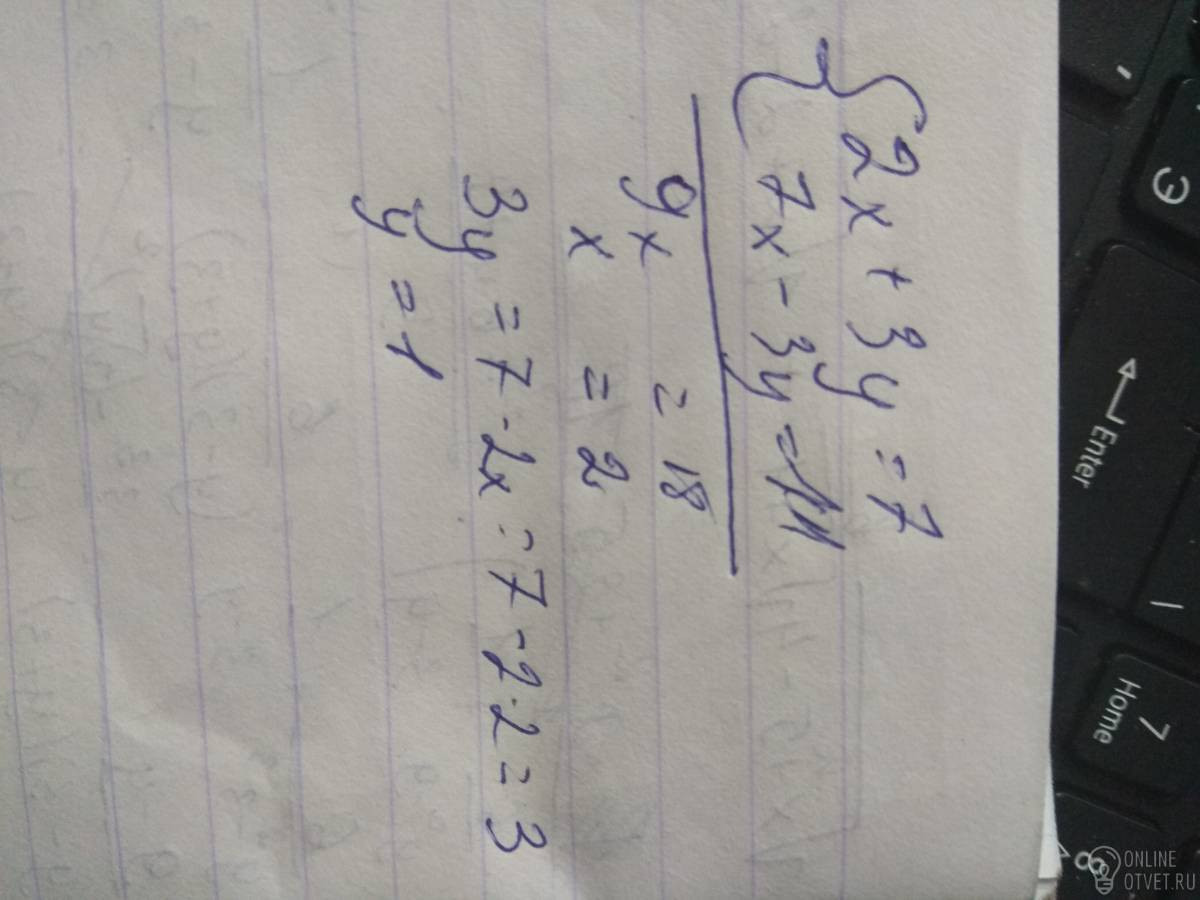 2x + 3y = 7
7x - 3y = 11
9x = 18
x = 2
3y = 7 - 2x = 7 - 2·2 = 3
y = 1
Э
Enter
\
7
Home
8
ONLINE
OTVET.RU